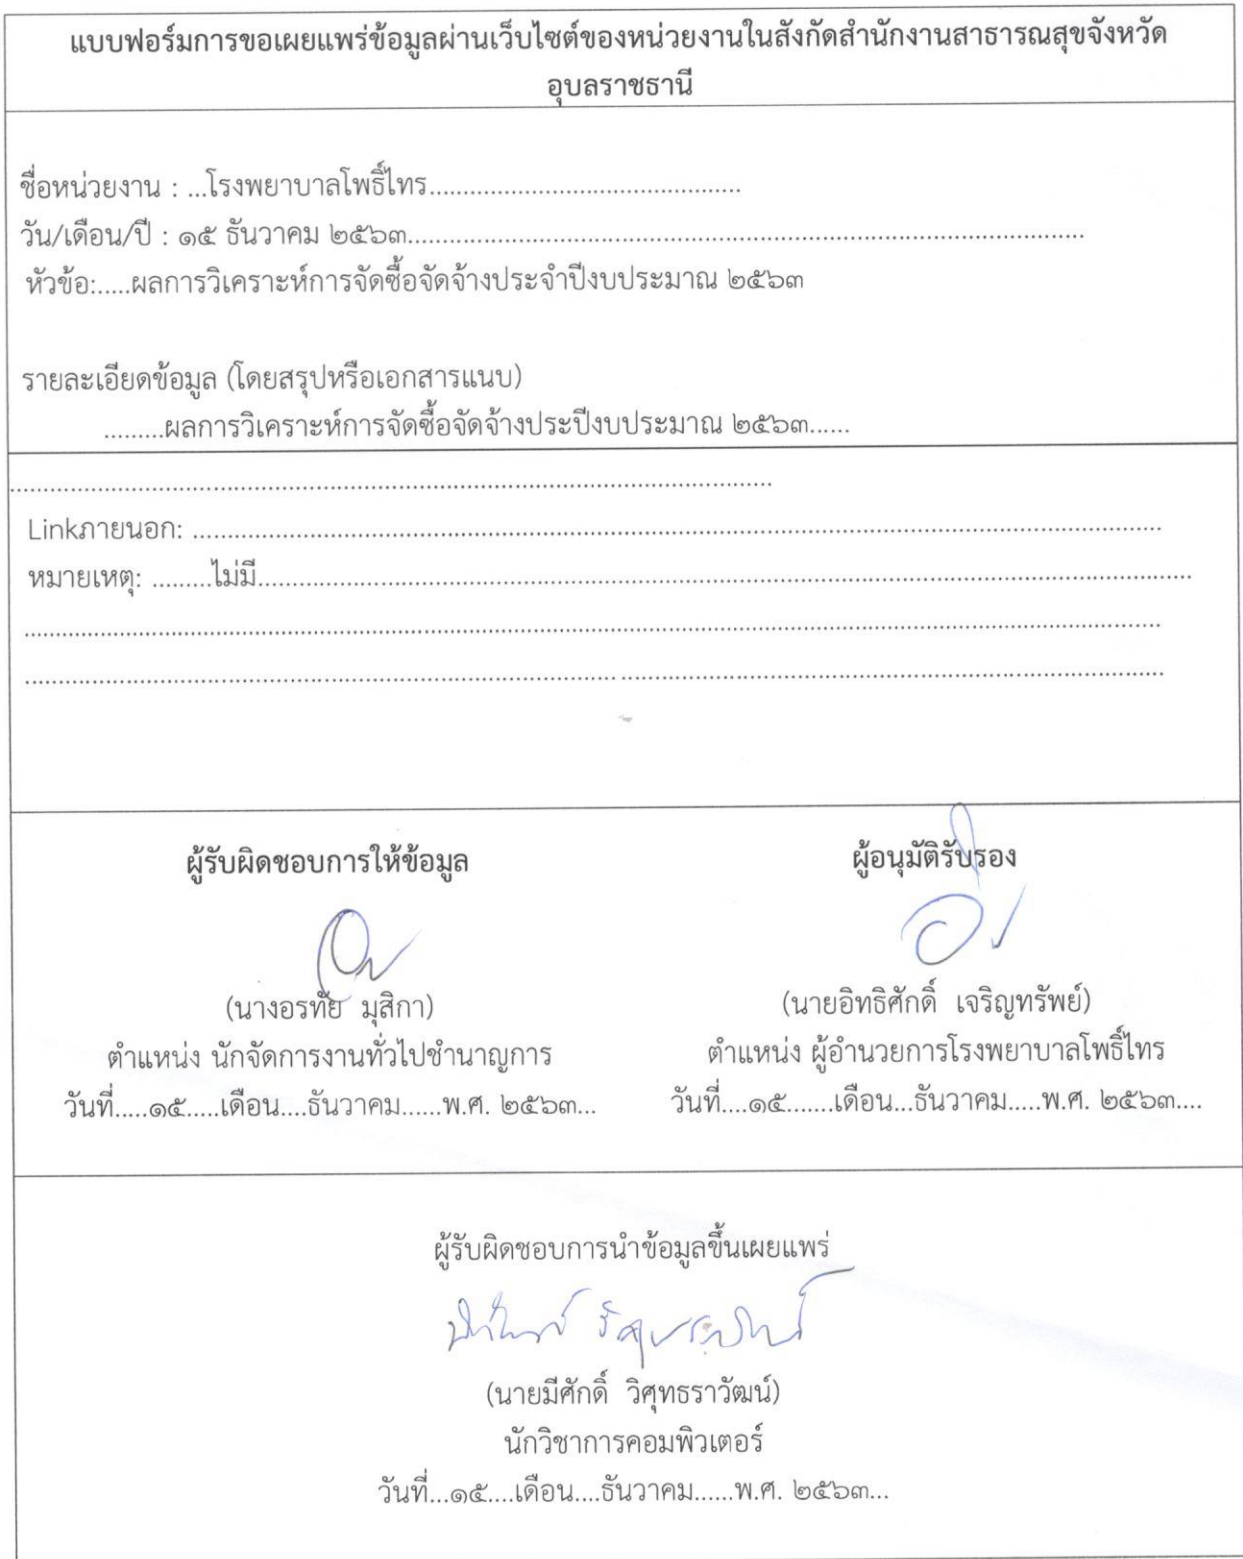 แบบฟอร์มการขอเผยแพร่ข้อมูลผ่านเว็บไซต์ของหน่วยงานในสังกัดสำนักงานสาธารณสุขจังหวัด
อุบลราชธานี
ชื่อหน่วยงาน : ...โรงพยาบาลโพธิ์ไทร..............................................
วัน/เดือน/ปี : ๑๕ ธันวาคม ๒๕๖๓....................................................................................................
หัวข้อ:.....ผลการวิเคราะห์การจัดซื้อจัดจ้างประจำปีงบประมาณ ๒๕๖๓
รายละเอียดข้อมูล (โดยสรุปหรือเอกสารแนบ)
.........ผลการวิเคราะห์การจัดซื้อจัดจ้างประปีงบประมาณ ๒๕๖๓......
................................................................................................................
Linkภายนอก: ................................................................................................................................................
หมายเหตุ: .........ไม่มี..........................................................................................................................................
........................................................................................................................................................................
........................................................................................................................................................................
ผู้รับผิดชอบการให้ข้อมูล
(นางอรทัย มุสิกา)
ตำแหน่ง นักจัดการงานทั่วไปชำนาญการ
วันที่.....๑๕.....เดือน....ธันวาคม......พ.ศ. ๒๕๖๓...
ผู้อนุมัติรับรอง
(นายอิทธิศักดิ์ เจริญทรัพย์)
ตำแหน่ง ผู้อำนวยการโรงพยาบาลโพธิ์ไทร
วันที่....๑๕.......เดือน...ธันวาคม.....พ.ศ. ๒๕๖๓....
ผู้รับผิดชอบการนำข้อมูลขึ้นเผยแพร่
(นายมีศักดิ์ วิศุทธราวัฒน์)
นักวิชาการคอมพิวเตอร์
วันที่...๑๕....เดือน....ธันวาคม......พ.ศ. ๒๕๖๓...